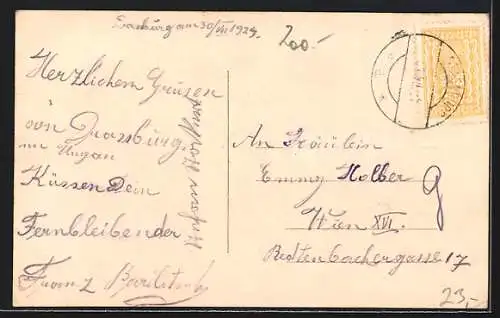 30/VII 1924.
200.-
Herzlichem Grüsen
von Drassburg
im Ungan
Küssen Dein
Fernbleibender
Franz
An Fräulein
Emmy Holber
Wien XVI.
Redtenbachergasse 17
23,-